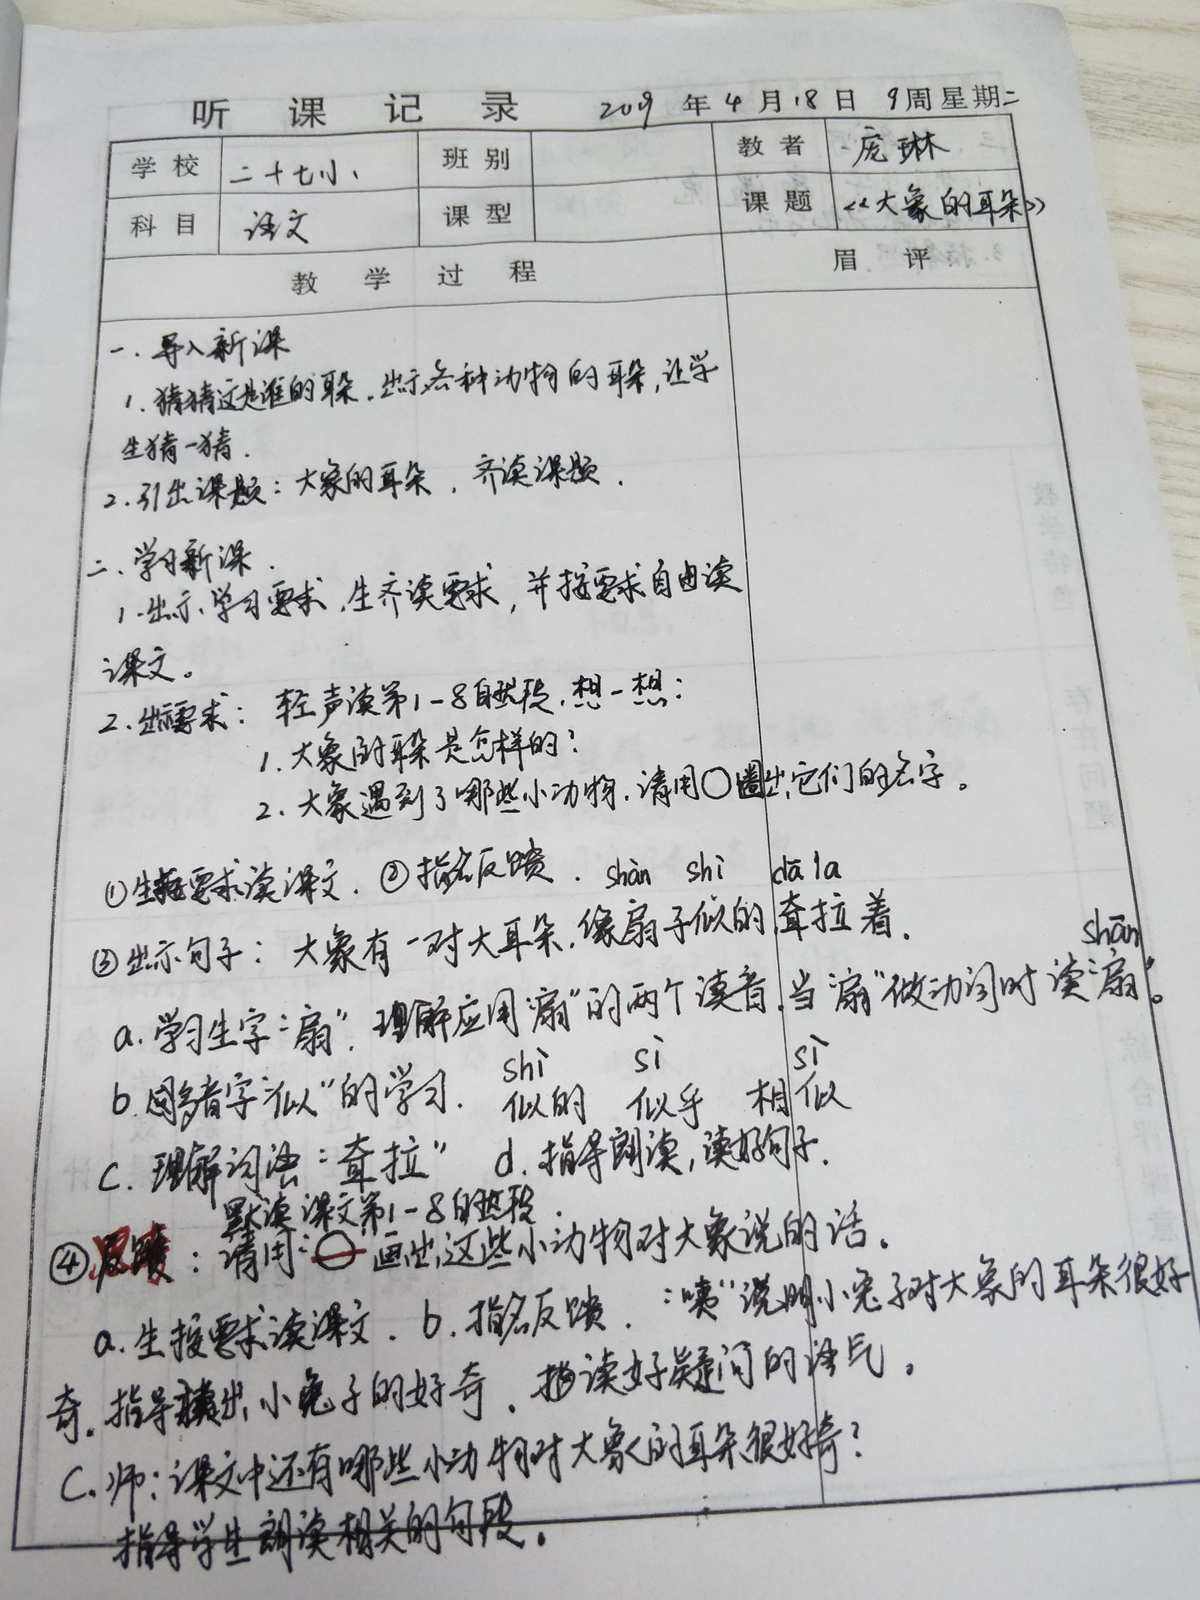 听课记录 2019年4月18日 9周星期二
学校 二十七小 班别 教者 庞琳
科目 语文 课型 课题 《大象的耳朵》
教学过程 眉评
一、导入新课
1.猜猜这是谁的耳朵。出示各种动物的耳朵,让学
生猜一猜.
2.引出课题:大象的耳朵,齐读课题.
二、学习新课.
1.出示学习要求,生齐读要求,并按要求自由读
课文。
2.出示要求: 轻声读第1-8自然段,想一想:
1.大象的耳朵是怎样的?
2.大象遇到了哪些小动物,请用○圈出它们的名字。
①生按要求读课文. ②指名反馈. shàn shì dā la
③出示句子:大象有一对大耳朵,像扇子似的耷拉着.
shān
a.学习生字“扇”,理解应用“扇”的两个读音,当“扇”做动词时读“扇”。
shì sì sì
b.多音字“似”的学习. 似的 似乎 相似
c.理解词语“耷拉” d.指导朗读,读好句子.
默读课文第1-8自然段.
④反馈:请用 画出这些小动物对大象说的话。
a.生按要求读课文. b.指名反馈.“咦”说明小兔子对大象的耳朵很好
奇。指导读出小兔子的好奇,读好疑问的语气。
c.师:课文中还有哪些小动物对大象的耳朵很好奇?
指导学生朗读相关的句段。